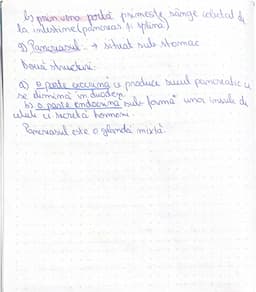 b) prin vena portă primește sânge colectat de
la intestine (pancreas și splină)
9) Pancreasul → situat sub stomac
Două structuri:
a) o parte exocrină ce produce sucul pancreatic ce
se elimină în duoden
b) o parte endocrină sub formă unor insule de
celule ce secretă hormoni.
Pancreasul este o glandă mixtă.